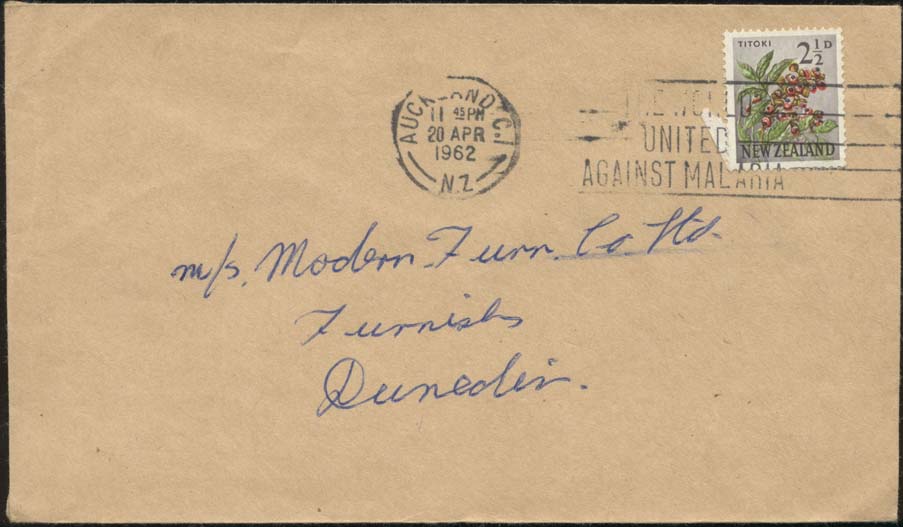 TITOKI
2½D
NEW ZEALAND
AUCKLAND C.1
11 45 PM
20 APR
1962
N.Z.
THE WORLD
UNITED
AGAINST MALARIA
M/s. Modern Furn. Co. Ltd.
Furnishs
Dunedin.